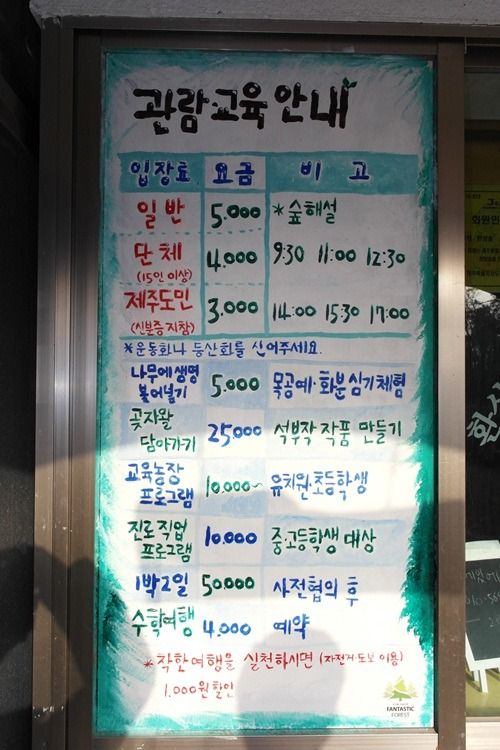 관람·교육 안내
입장료 요금 비고
일반 5.000 *숲해설
단체 4.000 9:30 11:00 12:30
(15인 이상)
제주도민 3.000 14:00 15:30 17:00
(신분증지참)
*운동화나 등산화를 신어주세요.
나무에생명 불어넣기 5.000 목공예·화분심기체험
곶자왈 담아가기 25.000 석부작 작품 만들기
교육농장 프로그램 10.000~ 유치원·초등학생
진로직업 프로그램 10.000 중고등학생 대상
1박2일 50.000 사전협의 후
수학여행 4.000 예약
*착한여행을 실천하시면 (자전거·도보 이용)
1.000원 할인
FANTASTIC
FOREST